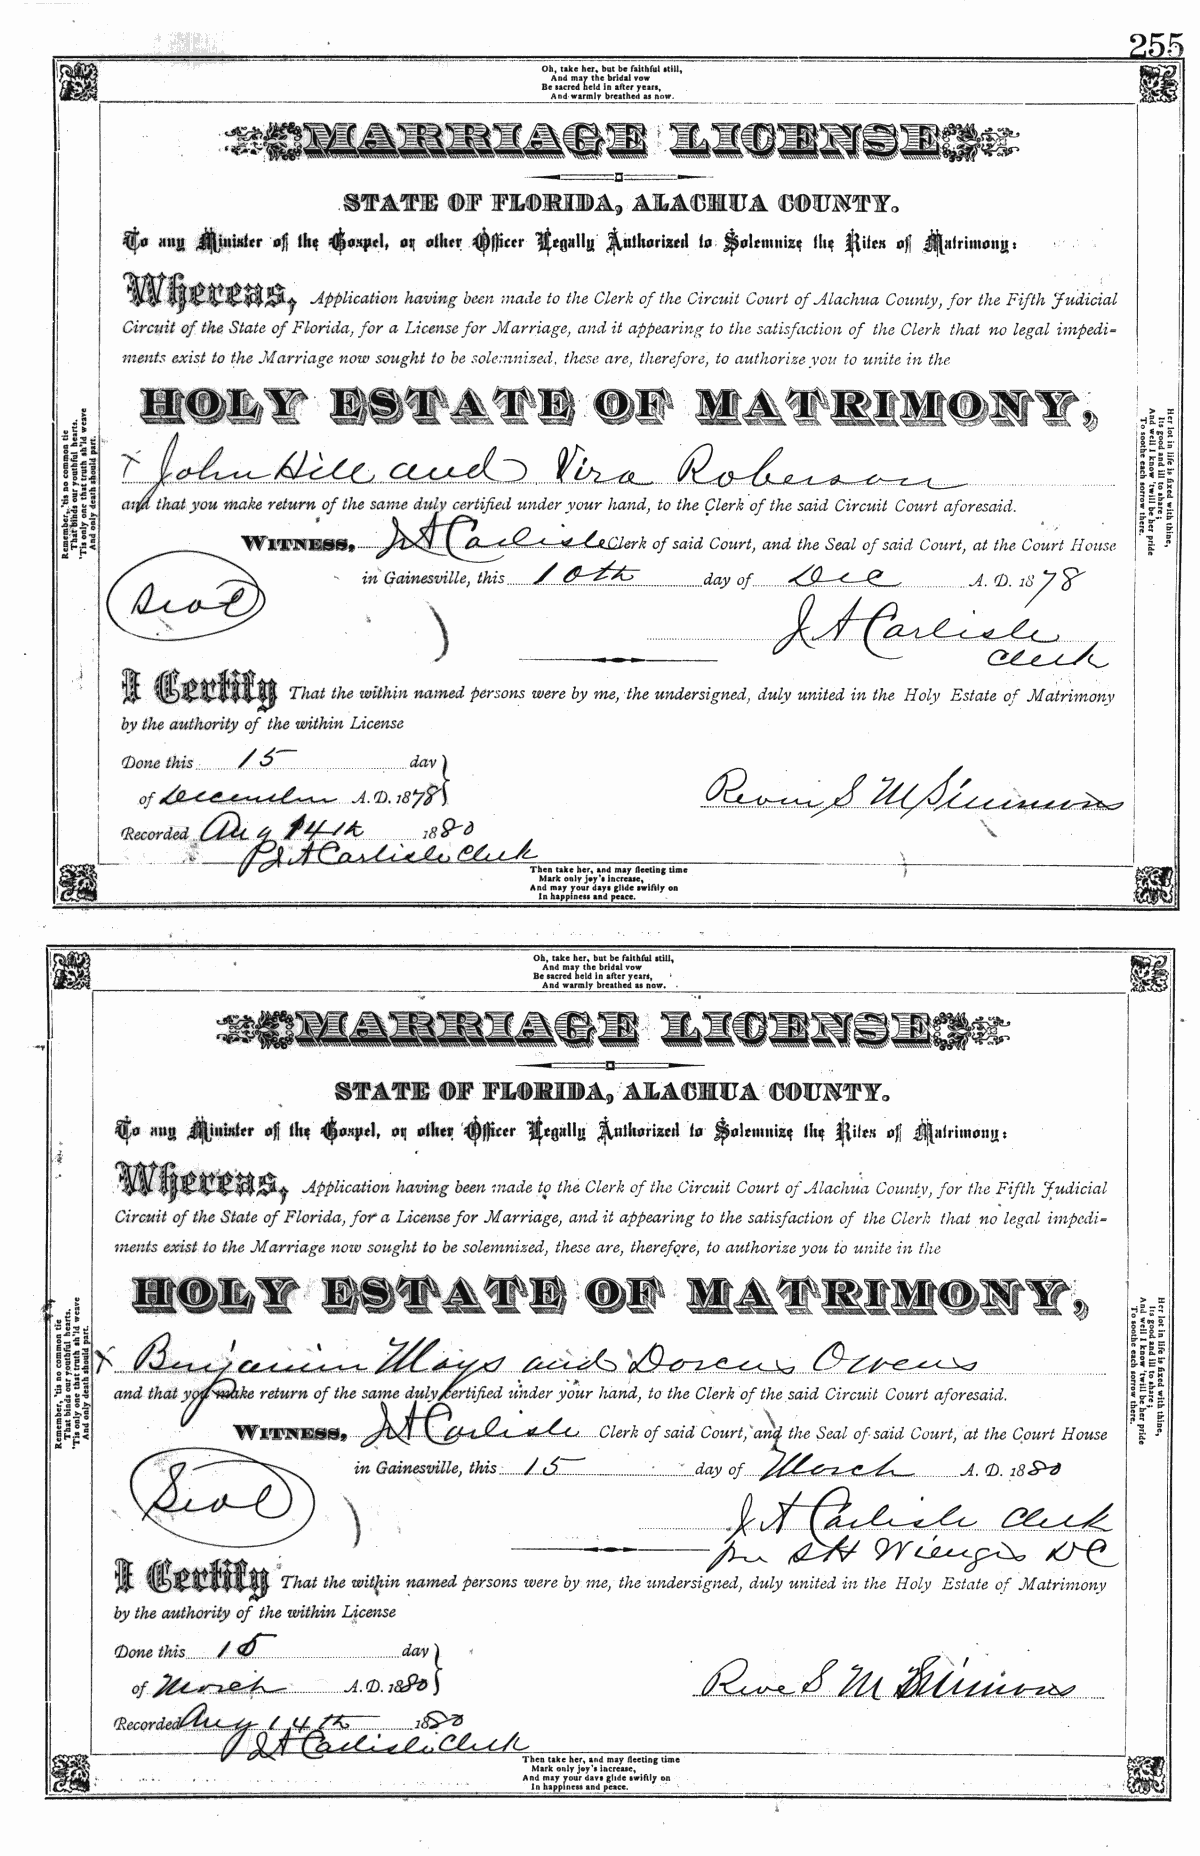 255
Oh, take her, but be faithful still,
And may the bridal vow
Be sacred held in after years,
And warmly breathed as now.
MARRIAGE LICENSE
STATE OF FLORIDA, ALACHUA COUNTY.
To any Minister of the Gospel, or other Officer Legally Authorized to Solemnize the Rites of Matrimony:
Whereas, Application having been made to the Clerk of the Circuit Court of Alachua County, for the Fifth Judicial
Circuit of the State of Florida, for a License for Marriage, and it appearing to the satisfaction of the Clerk that no legal impedi-
ments exist to the Marriage now sought to be solemnized, these are, therefore, to authorize you to unite in the
HOLY ESTATE OF MATRIMONY,
x John Hill and Vira Roberson
and that you make return of the same duly certified under your hand, to the Clerk of the said Circuit Court aforesaid.
WITNESS, J A Carlisle Clerk of said Court, and the Seal of said Court, at the Court House
in Gainesville, this 10th day of Dec A. D. 1878
Seal
J A Carlisle
Clerk
I Certify That the within named persons were by me, the undersigned, duly united in the Holy Estate of Matrimony
by the authority of the within License
Done this 15 day
of December A. D. 1878
S M Simmons
Recorded Aug 14th 1880
J A Carlisle Clerk
Then take her, and may fleeting time
Mark only joy's increase,
And may your days glide swiftly on
In happiness and peace.
Remember, 'tis no common tie
That binds our youthful hearts.
'Tis only one that truth sh'ld weave
And only death should part.
Her lot in life is fixed with thine,
Its good and ill to share;
And well I know 'twill be her pride
To soothe each sorrow there.
Oh, take her, but be faithful still,
And may the bridal vow
Be sacred held in after years,
And warmly breathed as now.
MARRIAGE LICENSE
STATE OF FLORIDA, ALACHUA COUNTY.
To any Minister of the Gospel, or other Officer Legally Authorized to Solemnize the Rites of Matrimony:
Whereas, Application having been made to the Clerk of the Circuit Court of Alachua County, for the Fifth Judicial
Circuit of the State of Florida, for a License for Marriage, and it appearing to the satisfaction of the Clerk that no legal impedi-
ments exist to the Marriage now sought to be solemnized, these are, therefore, to authorize you to unite in the
HOLY ESTATE OF MATRIMONY,
x Benjamin Mays and Dorcus Owens
and that you make return of the same duly certified under your hand, to the Clerk of the said Circuit Court aforesaid.
WITNESS, J A Carlisle Clerk of said Court, and the Seal of said Court, at the Court House
in Gainesville, this 15 day of March A. D. 1880
Seal
J A Carlisle Clerk
per S H DC
I Certify That the within named persons were by me, the undersigned, duly united in the Holy Estate of Matrimony
by the authority of the within License
Done this 15 day
of March A. D. 1880
S M Simmons
Recorded Aug 14th 1880
J A Carlisle Clerk
Then take her, and may fleeting time
Mark only joy's increase,
And may your days glide swiftly on
In happiness and peace.
Remember, 'tis no common tie
That binds our youthful hearts.
'Tis only one that truth sh'ld weave
And only death should part.
Her lot in life is fixed with thine,
Its good and ill to share;
And well I know 'twill be her pride
To soothe each sorrow there.